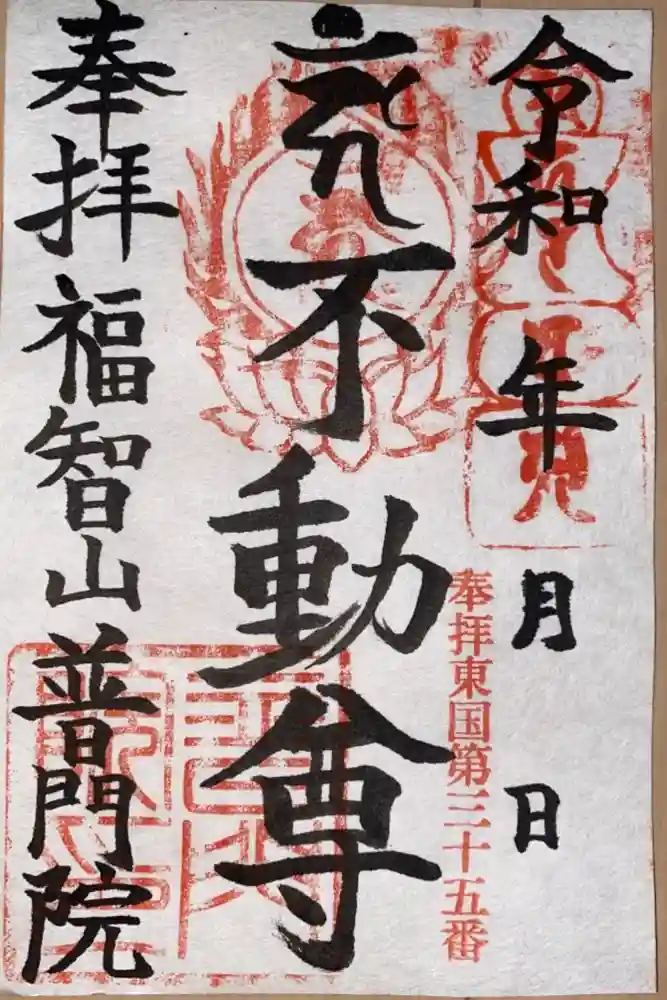 令和 年 月 日
奉拝東国第三十五番
不動尊
奉拝 福智山 普門院